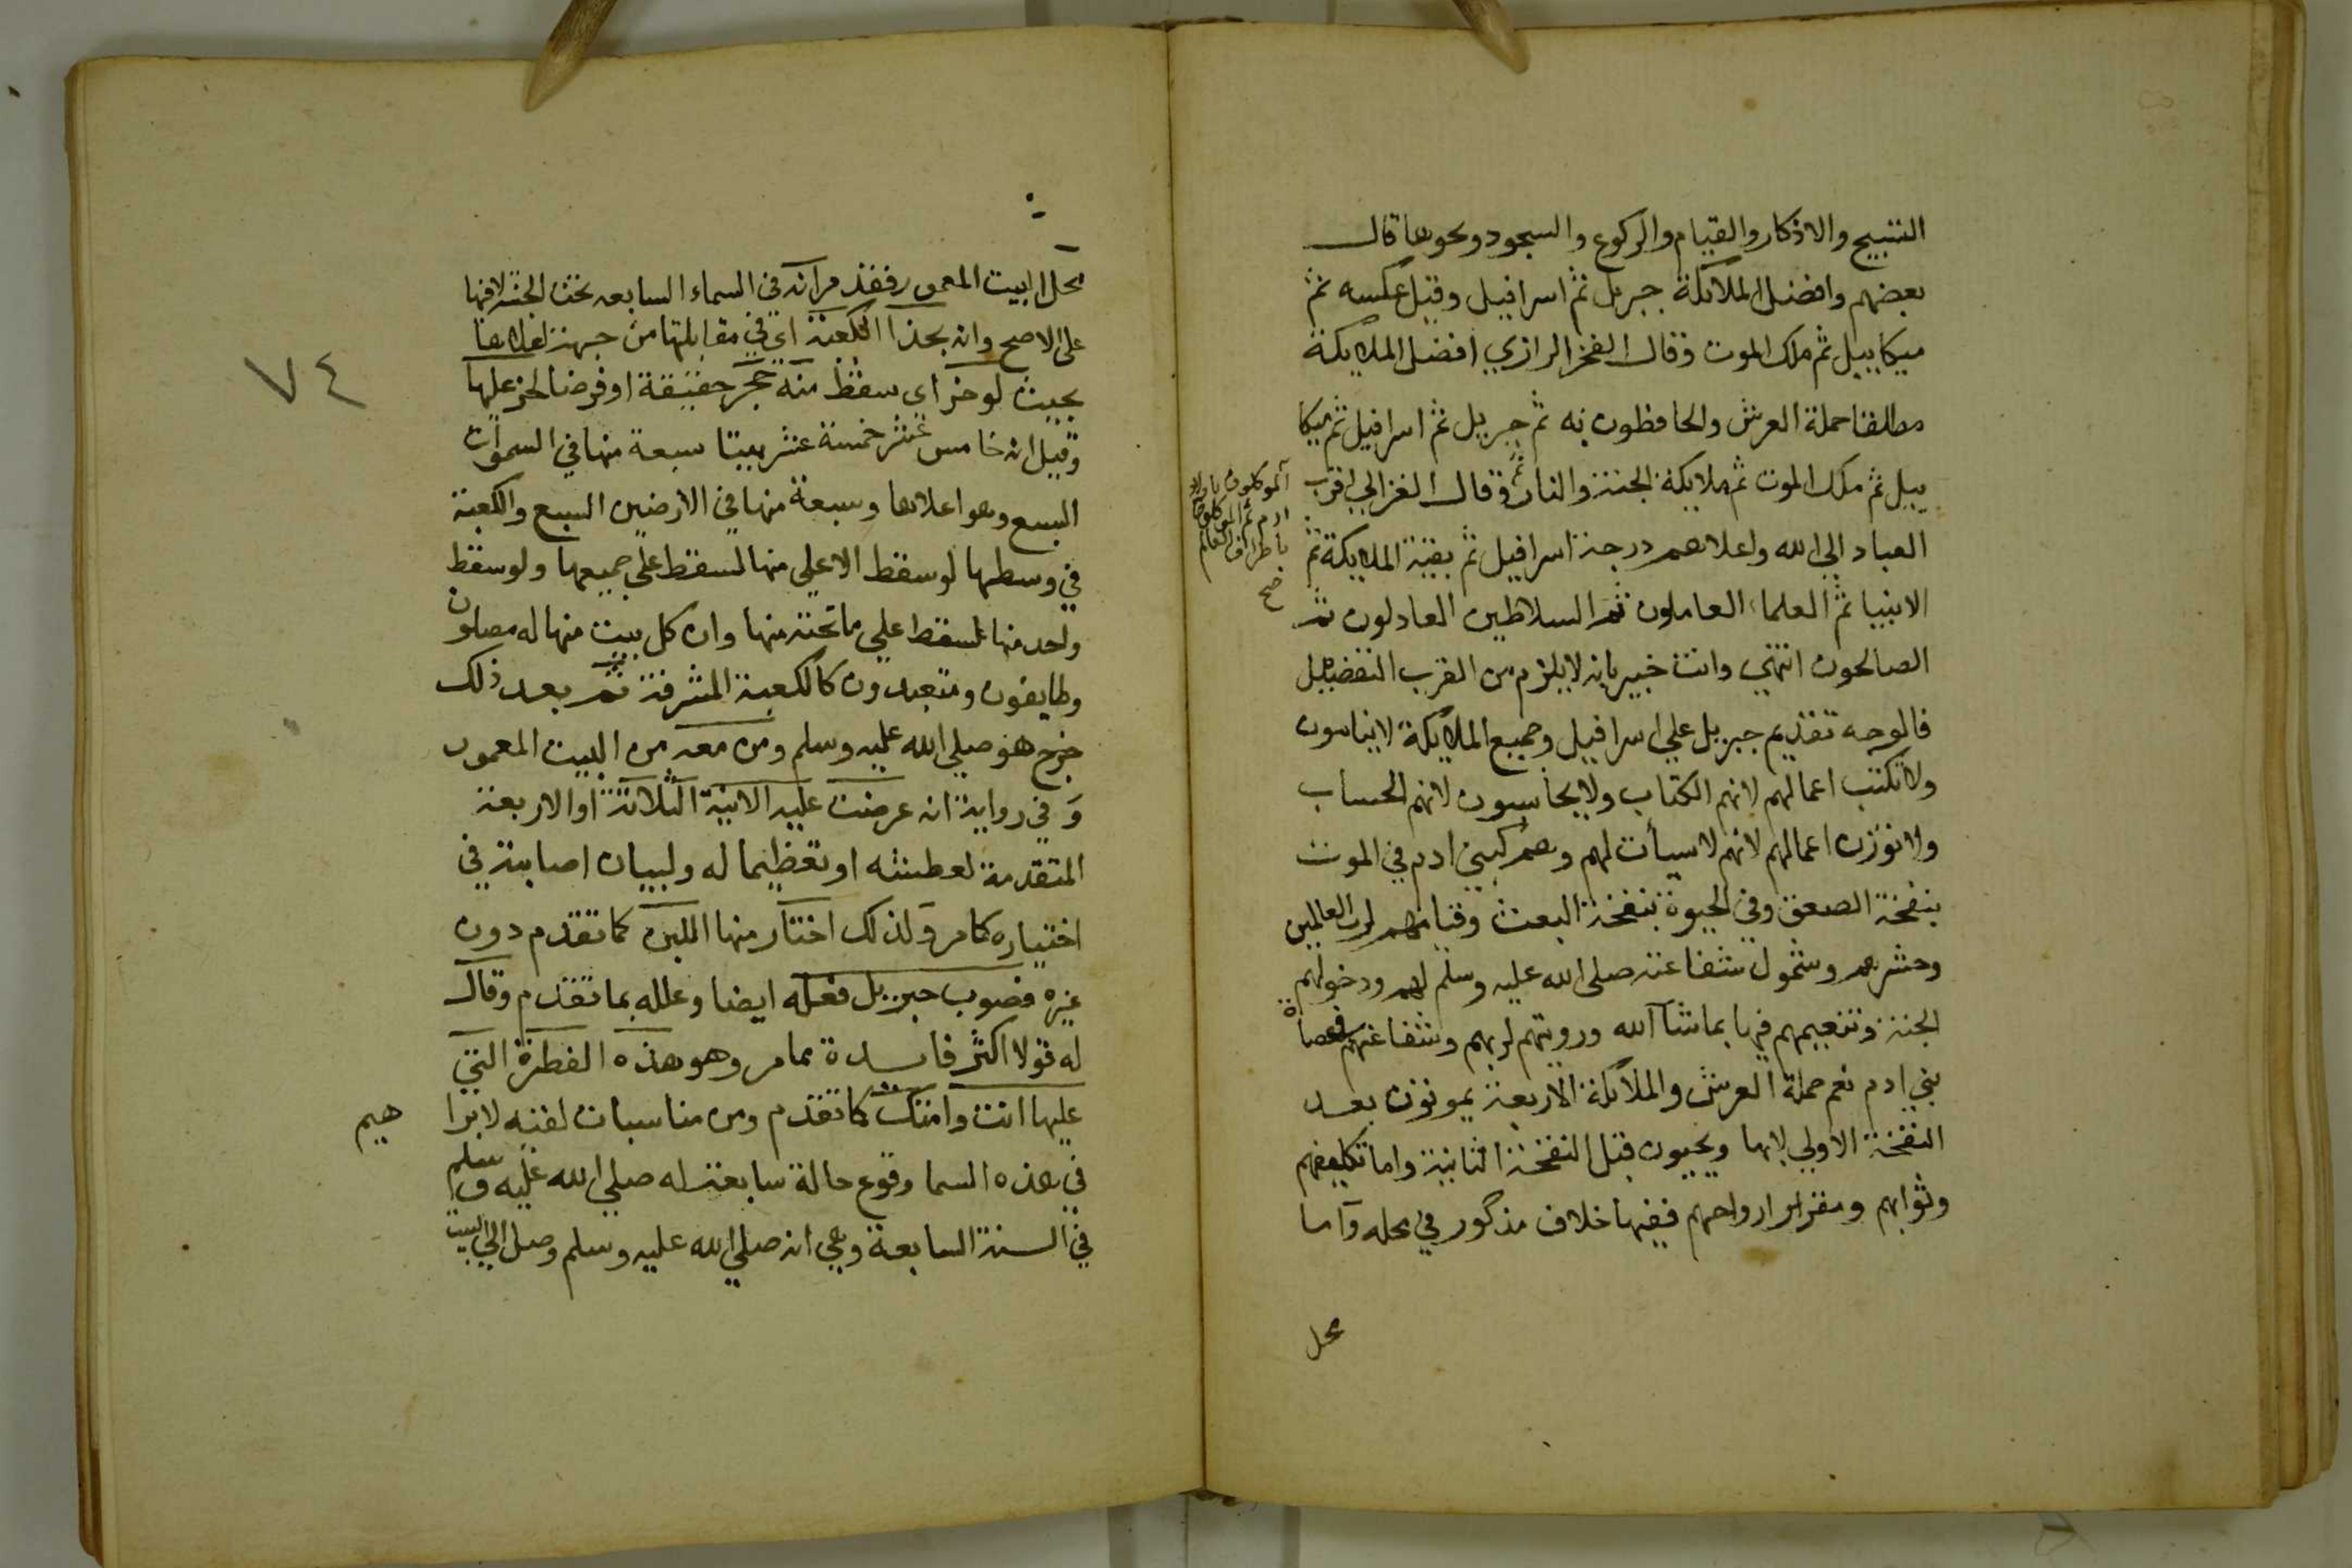 التسبيح والاذكار والقيام والركوع والسجود ونحوها قال
بعضهم وافضل الملائكة جبريل ثم اسرافيل وقيل عكسه ثم
ميكاييل ثم ملك الموت وقال الفخر الرازي افضل الملايكة
مطلقا حملة العرش والحافظون به ثم جبريل ثم اسرافيل ثم ميكا
ييل ثم ملك الموت ثم ملايكة الجنة والنار ثم وقال الغزالي اقرب
الموكلون باولاد
ادم ثم الموكلون
باطراف العالم
صح
العباد الي الله واعلاهم درجة اسرافيل ثم بقية الملايكة ثم
الانبيا ثم العلماء العاملون ثم السلاطين العادلون ثم
الصالحون انتهي وانت خبير بانه لا يلزم من القرب التفضيل
فالوجه تقديم جبريل علي اسرافيل وجميع الملايكة لا ينامون
ولا تكتب اعمالهم لانهم الكتاب ولا يحاسبون لانهم الحساب
ولا توزن اعمالهم لانهم لا سيأت لهم وهم كبني ادم في الموت
بنفخة الصعق وفي الحيوة بنفخة البعث وقيامهم لرب العالمين
وحشرهم وشمول شفاعته صلى الله عليه وسلم لهم ودخولهم
الجنة وتنعيمهم فيها بما شآ الله ورويتهم لربهم وشفاعتهم في عصاة
بني ادم نعم حملة العرش والملائكة الاربعة يموتون بعد
النفخة الاولي لا بها ويحيون قبل النفخة الثانية واما تكليفهم
وثوابهم ومقر ارواحهم ففيها خلاف مذكور في محله وآما
محل
٧٤
محل البيت المعمور فقد مر انه في السماء السابعه تحت الجنة لا فيها
على الاصح وانه بحذا الكعبة اي في مقابلتها من جهة اعلاها
بحيث لو خر اي سقط منه حجر حقيقة او فرضا لخر عليها
وقيل انه خامس عشر خمسة عشر بيتا سبعة منها في السموات
السبع وهو اعلاها وسبعة منها في الارضين السبع والكعبة
في وسطها لو سقط الاعلي منها لسقط علي جميعها ولو سقط
واحد منها لسقط علي ما تحته منها وان كل بيت منها له مصلون
وطايفون ومتعبدون كالكعبة المشرفة ثم بعد ذلك
خرج هو صلي الله عليه وسلم ومن معه من البيت المعمور
وفي رواية انه عرضت عليه الانية الثلاثة او الاربعة
المتقدمة لعطشه او تعظيما له ولبيان اصابته في
اختياره كما مر ولذلك اختار منها اللبن كما تقدم دون
غيره فصوب جبريل فعله ايضا وعلله بما تقدم وقال
له قولا اكثر فائدة مما مر وهو هذه الفطرة التي
عليها انت وامتك كما تقدم ومن مناسبات لقيه لابرا
هيم
في هذه السما وقوع حالة سابعة له صلي الله عليه وسلم
في السنة السابعة وهي انه صلي الله عليه وسلم وصل الي البيت